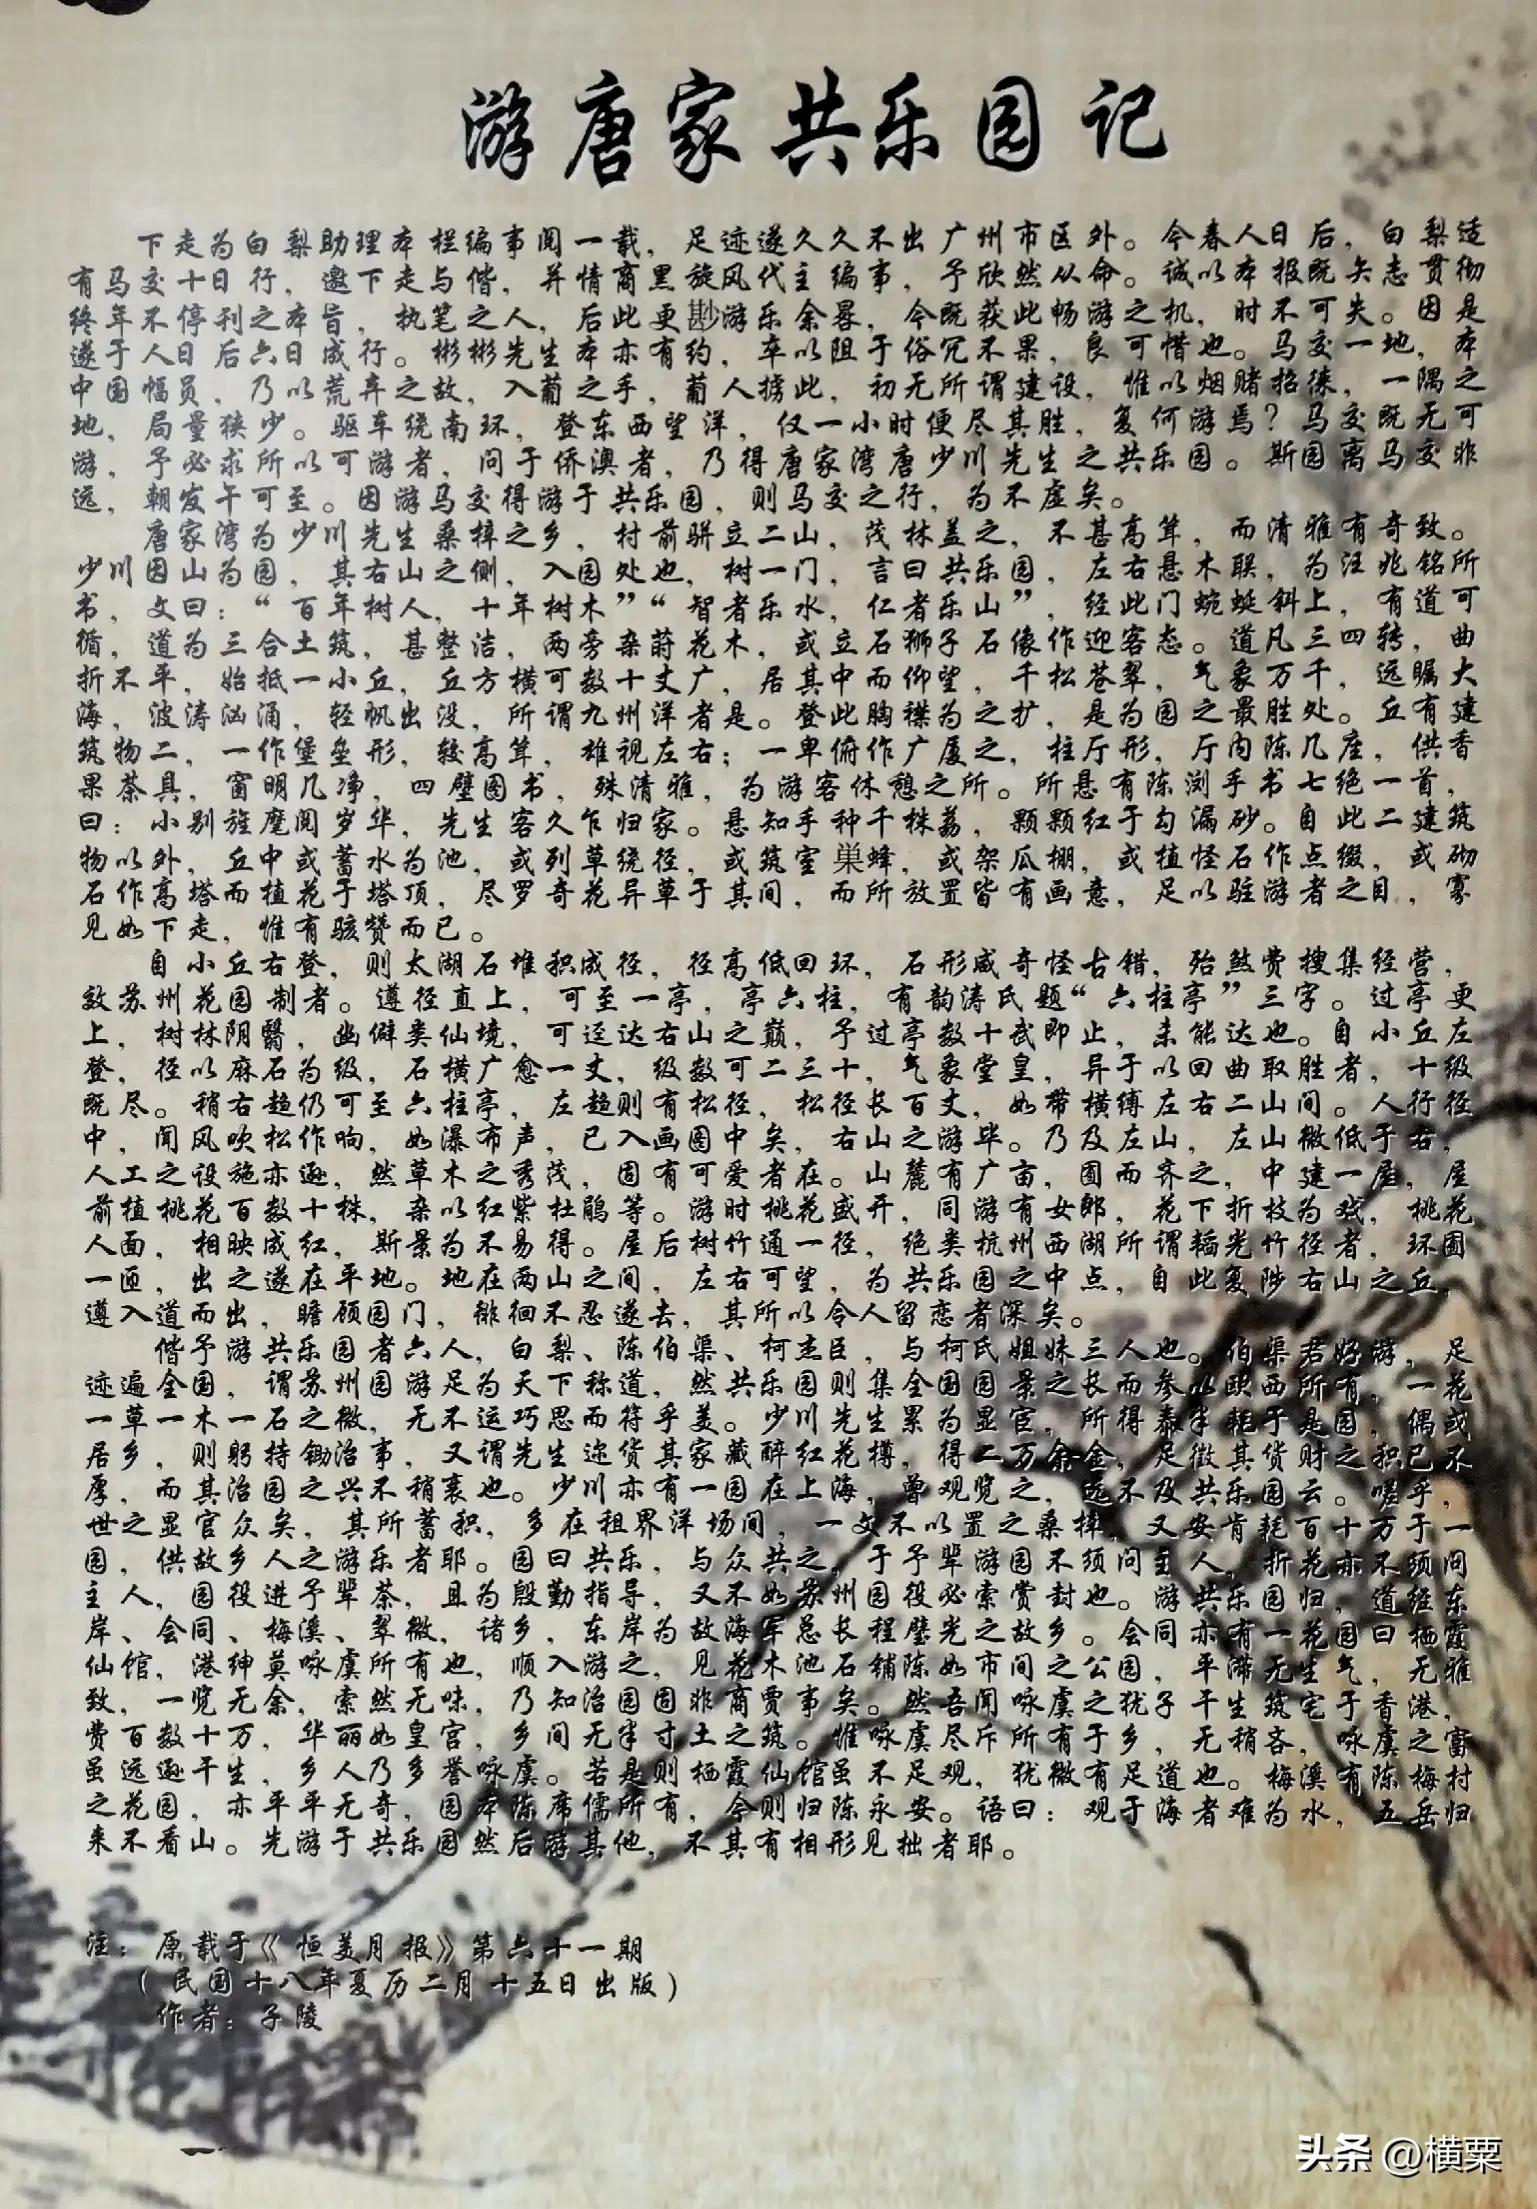 游唐家共乐园记
下走为白梨助理本栏编事阅一载，足迹遂久久不出广州市区外。今春人日后，白梨适
有马交十日行，邀下走与偕，并情商黑旋风代主编事，予欣然从命。诚以本报既矢志贯彻
终年不停刊之本旨，执笔之人，后此更尠游乐余晷，今既获此畅游之机，时不可失。因是
遂于人日后六日成行。彬彬先生本亦有约，卒以阻于俗冗不果，良可惜也。马交一地，本
中国幅员，乃以荒弃之故，入葡之手，葡人掳此，初无所谓建设，惟以烟赌招徕，一隅之
地，局量狭少。驱车绕南环，登东西望洋，仅一小时便尽其胜，复何游焉？马交既无可
游，予必求所以可游者，问于侨澳者，乃得唐家湾唐少川先生之共乐园。斯园离马交非
远，朝发午可至。因游马交得游于共乐园，则马交之行，为不虚矣。
唐家湾为少川先生桑梓之乡，村前骈立二山，茂林盖之，不甚高耸，而清雅有奇致。
少川因山为园，其右山之侧，入园处也，树一门，言曰共乐园，左右悬木联，为汪兆铭所
书，文曰：“百年树人，十年树木”“智者乐水，仁者乐山”，经此门蜿蜒斜上，有道可
循，道为三合土筑，甚整洁，两旁杂莳花木，或立石狮子石像作迎客态。道凡三四转，曲
折不平，始抵一小丘，丘方横可数十丈广，居其中而仰望，千松苍翠，气象万千，远瞩大
海，波涛汹涌，轻帆出没，所谓九州洋者是。登此胸襟为之扩，是为园之最胜处。丘有建
筑物二，一作堡垒形，较高耸，雄视左右；一卑俯作广厦之，柱厅形，厅内陈几座，供香
果茶具，窗明几净，四壁图书，殊清雅，为游客休憩之所。所悬有陈浏手书七绝一首，
曰：小别旌麾阅岁华，先生客久乍归家。悬知手种千株荔，颗颗红于勾漏砂。自此二建筑
物以外，丘中或蓄水为池，或列草绕径，或筑室巢蜂，或架瓜棚，或植怪石作点缀，或砌
石作高塔而植花于塔顶，尽罗奇花异草于其间，而所放置皆有画意，足以驻游者之目，寡
见如下走，惟有骇赞而已。
自小丘右登，则太湖石堆积成径，径高低回环，石形咸奇怪古错，殆煞费搜集经营，
效苏州花园制者。遵径直上，可至一亭，亭六柱，有韵涛氏题“六柱亭”三字。过亭更
上，树林阴翳，幽僻类仙境，可迳达右山之巅，予过亭数十武即止，未能达也。自小丘左
登，径以麻石为级，石横广愈一丈，级数可二三十，气象堂皇，异于以回曲取胜者，十级
既尽。稍右趋仍可至六柱亭，左趋则有松径，松径长百丈，如带横缚左右二山间。人行径
中，闻风吹松作响，如瀑布声，已入画图中矣，右山之游毕。乃及左山，左山微低于右，
人工之设施亦逊，然草木之秀茂，固有可爱者在。山麓有广亩，囿而齐之，中建一屋，屋
前植桃花百数十株，杂以红紫杜鹃等。游时桃花盛开，同游有女郎，花下折枝为戏，桃花
人面，相映成红，斯景为不易得。屋后树竹通一径，绝类杭州西湖所谓韬光竹径者，环囿
一匝，出之遂在平地。地在两山之间，左右可望，为共乐园之中点，自此复陟右山之丘，
遵入道而出，瞻顾园门，徘徊不忍遂去，其所以令人留恋者深矣。
偕予游共乐园者六人，白梨、陈伯渠、柯杰臣，与柯氏姐妹三人也。伯渠君好游，足
迹遍全国，谓苏州园游足为天下称道，然共乐园则集全国园景之长而参以欧西所有，一花
一草一木一石之微，无不运巧思而符乎美。少川先生累为显宦，所得泰半耗于是园，偶或
居乡，则躬持锄治事，又谓先生迩货其家藏醉红花樽，得二万余金，足徵其货财之积已不
厚，而其治园之兴不稍衰也。少川亦有一园在上海，曾观览之，远不及共乐园云。嗟乎，
世之显官众矣，其所蓄积，多在租界洋场间，一文不以置之桑梓，又安肯耗百十万于一
园，供故乡人之游乐者耶。园曰共乐，与众共之，于予辈游园不须问主人，折花亦不须问
主人，园役进予辈茶，且为殷勤指导，又不如苏州园役必索赏封也。游共乐园归，道经东
岸、会同、梅溪、翠微，诸乡，东岸为故海军总长程璧光之故乡。会同亦有一花园曰栖霞
仙馆，港绅莫咏虞所有也，顺入游之，见花木池石铺陈如市间之公园，平滞无生气，无雅
致，一览无余，索然无味，乃知治园固非商贾事矣。然吾闻咏虞之犹子干生筑宅于香港，
费百数十万，华丽如皇宫，乡间无半寸土之筑。惟咏虞尽斥所有于乡，无稍吝，咏虞之富
虽远逊干生，乡人乃多誉咏虞。若是则栖霞仙馆虽不足观，犹微有足道也。梅溪有陈梅村
之花园，亦平平无奇，园本陈席儒所有，今则归陈永安。语曰：观于海者难为水，五岳归
来不看山。先游于共乐园然后游其他，不其有相形见拙者耶。
注：原载于《恒美月报》第六十一期
（民国十八年夏历二月十五日出版）
作者：子陵
头条 @横粟